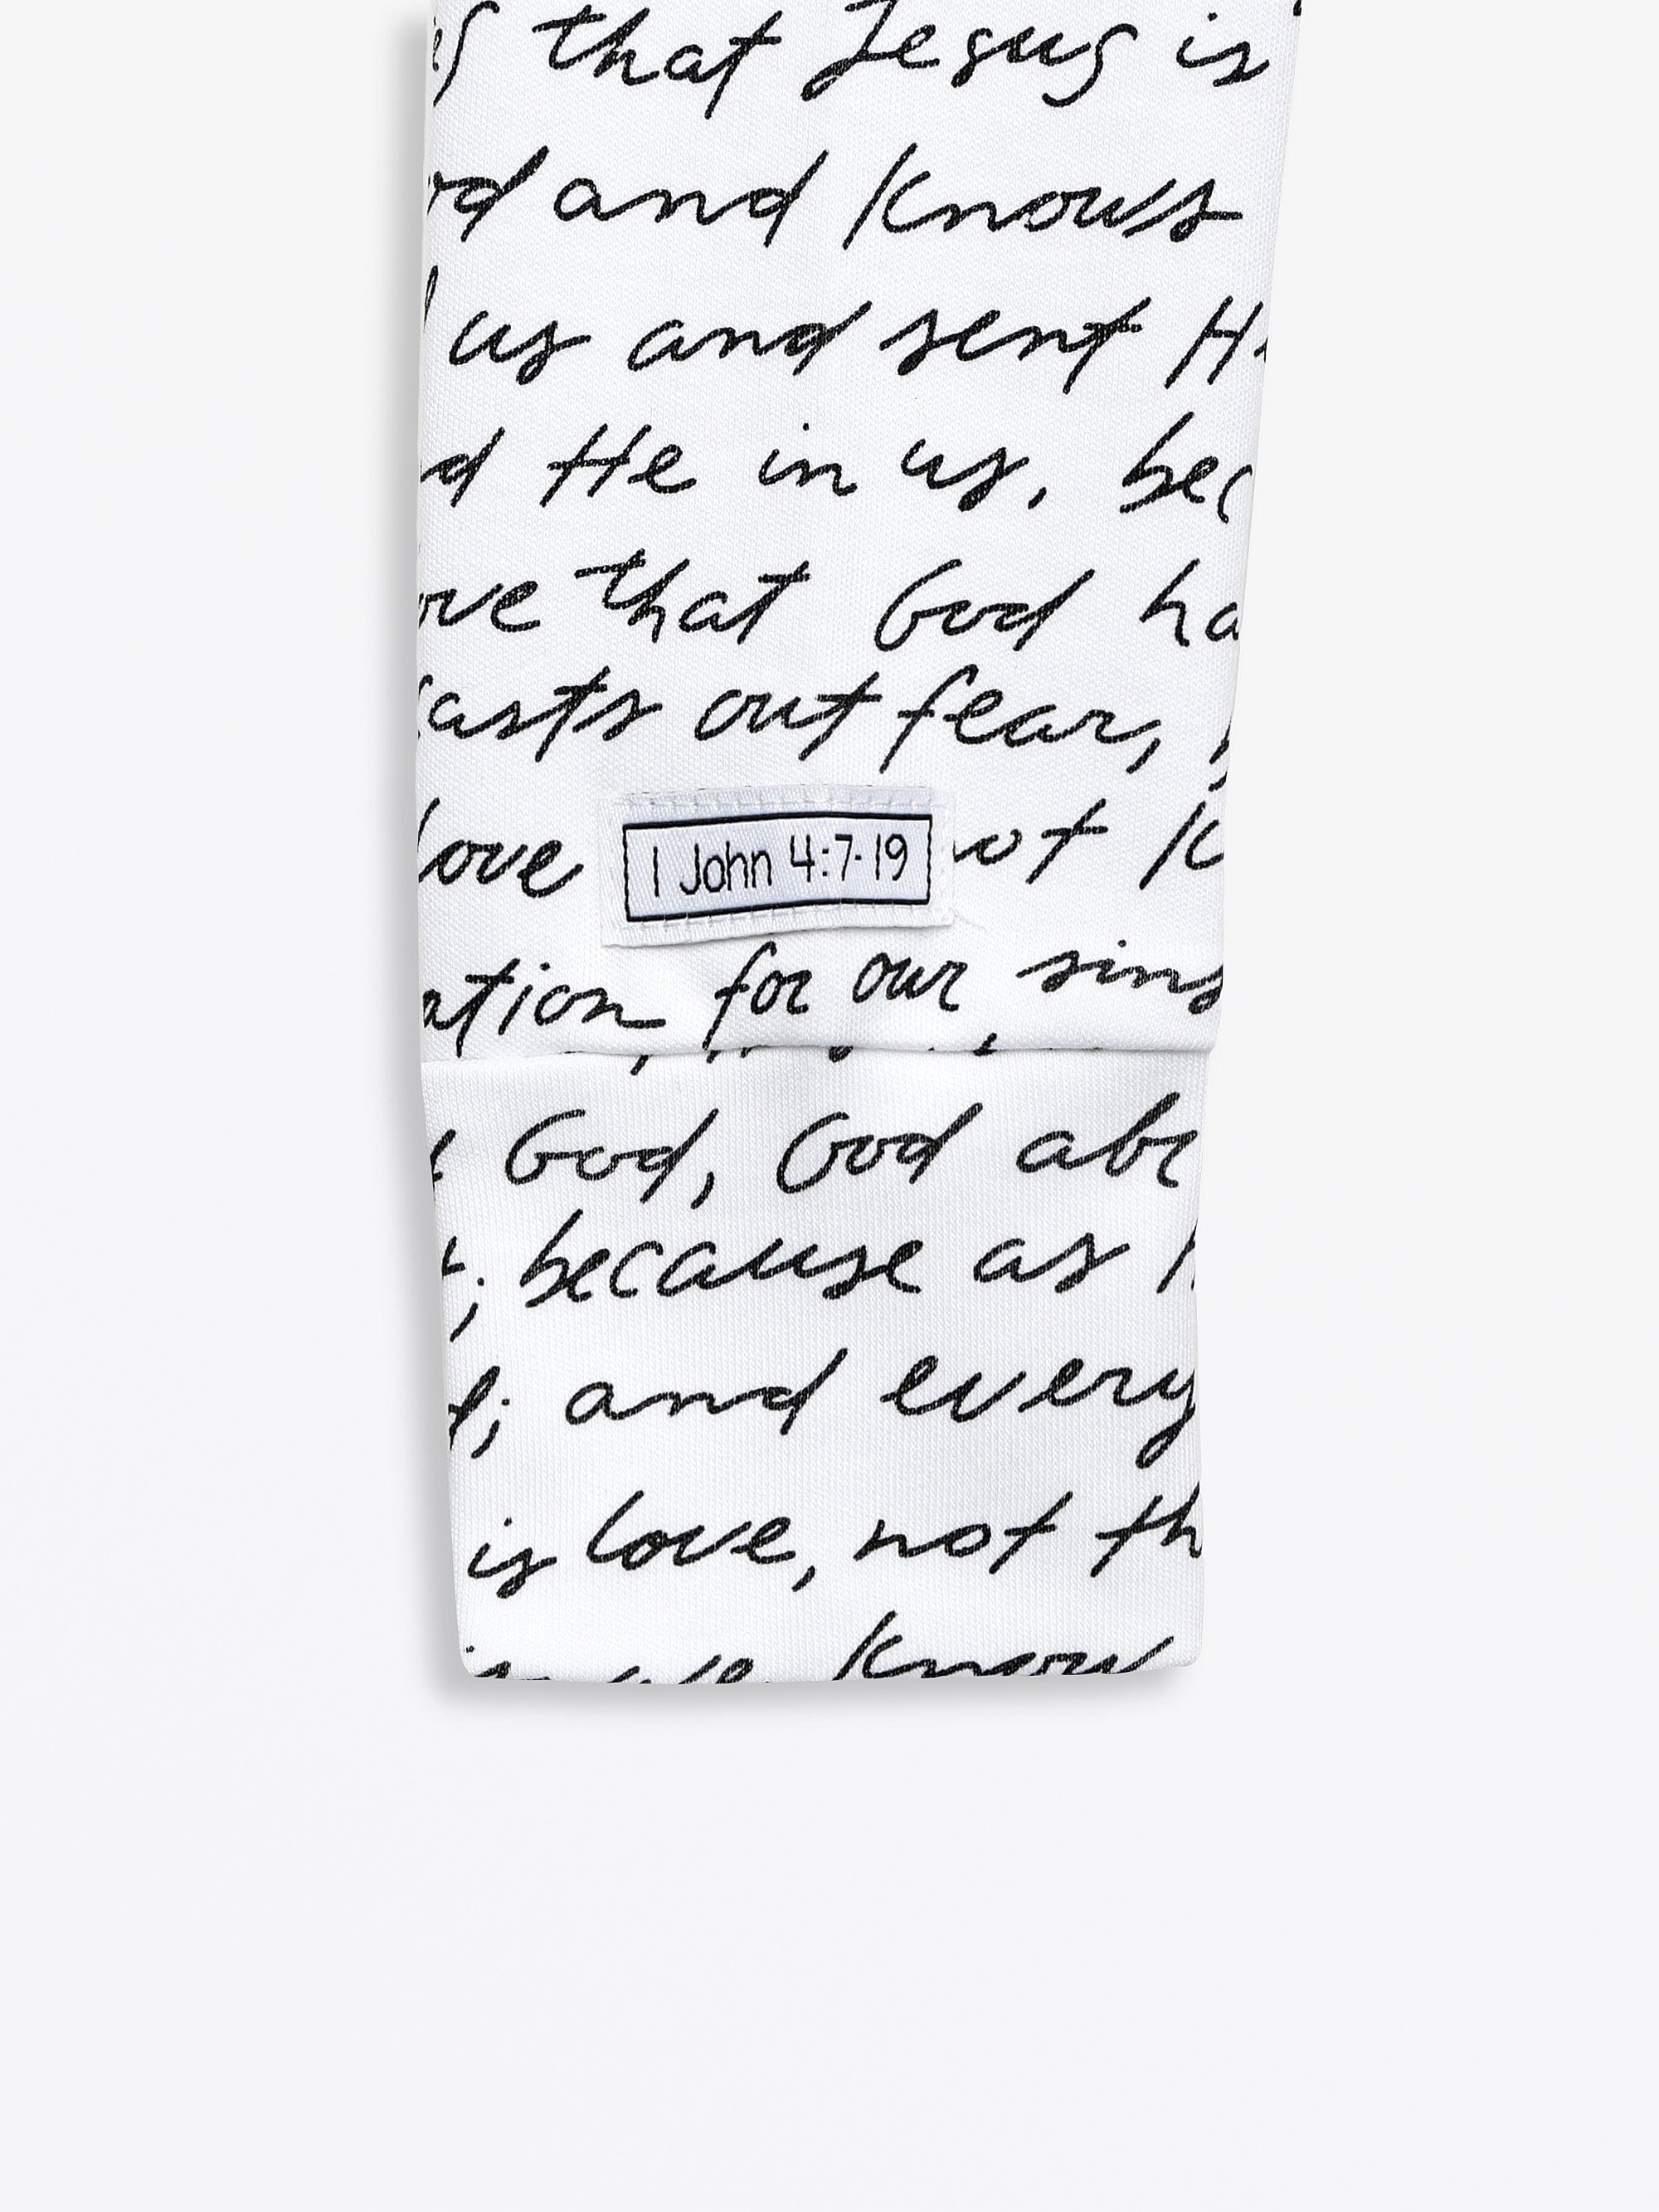 that Jesus is
and knows
us and sent
He in us, bec
ove that God ha
asts out fear,
love ot K
1 John 4:7-19
ation for our sins
God, God ab
; because as
; and every
is love, not th
know